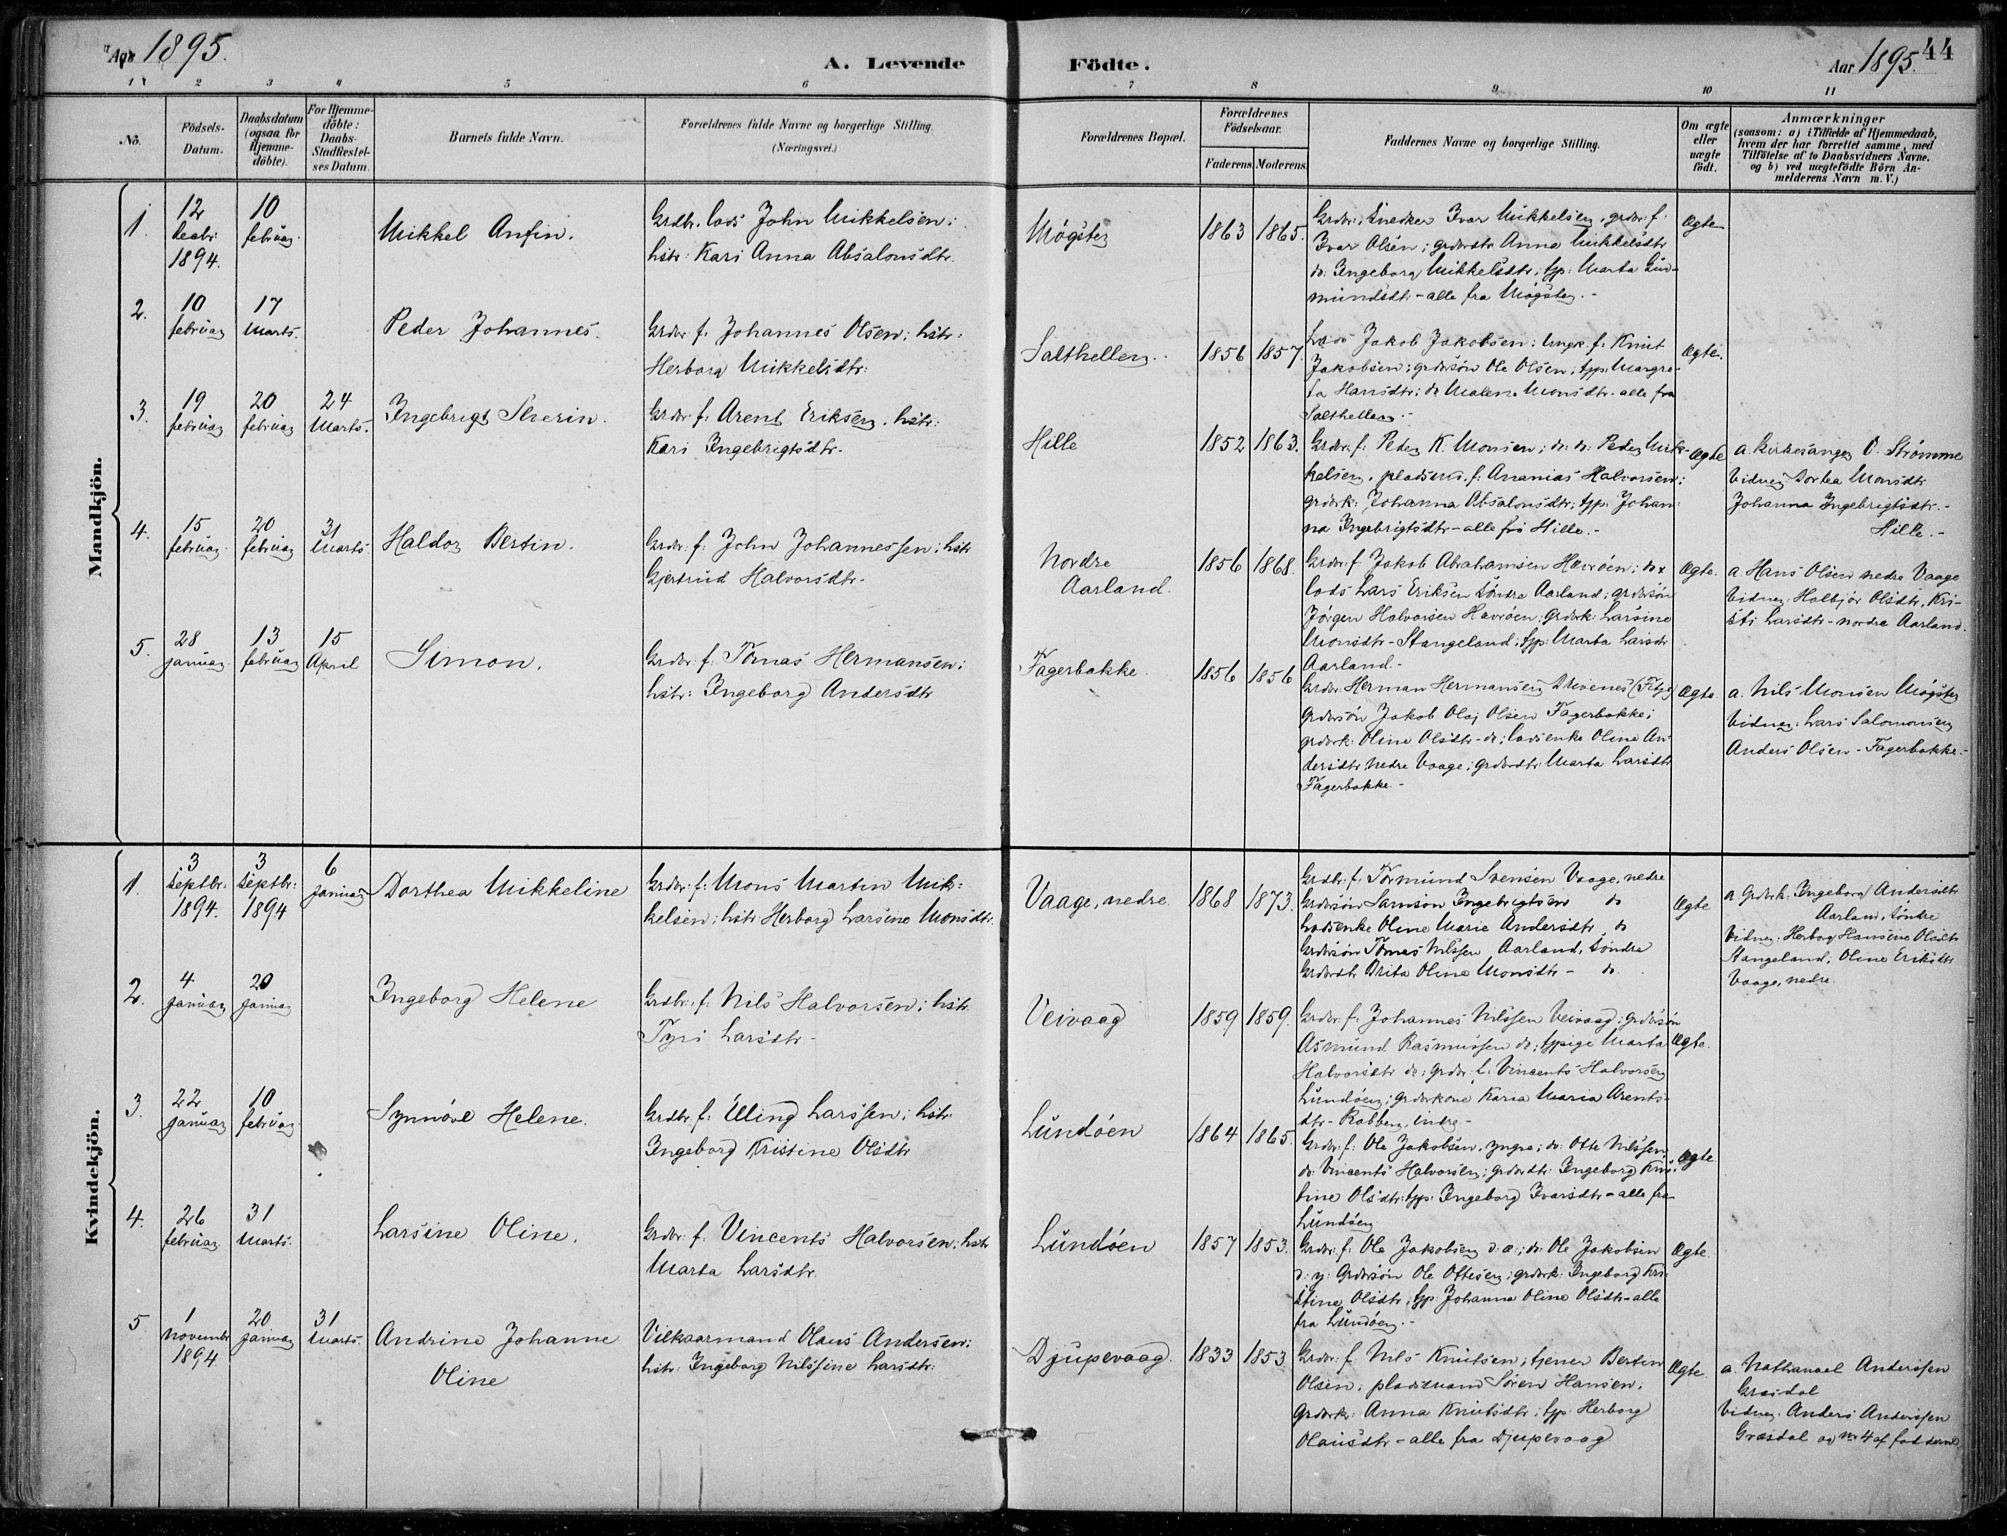 Aar 1895.
A. Levende
Födte.
Aar 1895.
44
1 2 3 4 5 6 7 8 9 10 11
No.
Födsels-
Datum.
Daabsdatum
(ogsaa for
Hjemme-
döbte).
For Hjemme-
döbte:
Daabs-
Stadfæstel-
ses Datum.
Barnets fulde Navn.
Forældrenes fulde Navne og borgerlige Stilling
(Næringsvei.)
Forældrenes Bopæl.
Forældrenes
Födselsaar.
Faderens. Moderens.
Faddernes Navne og borgerlige Stilling.
Om ægte
eller
uægte
födt.
Anmærkninger
(saasom: a) i Tilfælde af Hjemmedaab,
hvem der har forrettet samme, med
Tilföielse af to Daabsvidners Navne.
og b) ved uægtefödte Börn An-
melderens Navn m. V.)
Mandkjön.
1.
12
decbr.
1894.
10
februar
Mikkel Anfin.
Grdbr. lods John Mikkelsen;
hstr: Kari Anna Absalonsdtr.
Møgster
1863 1865.
Grdbr. Snedker Ivar Mikkelsen, grdbr. f.
Ivar Olsen; grdbrdtr Anna Mikkelsdtr
do. Ingeborg Mikkelsdtr; tjp: Marta Gud-
mundsdtr - alle fra Møgster. -
Ægte
2.
10
februar
17
Marts.
Peder Johannes.
Grdbr. f. Johannes Olsen; hstr:
Herborg Mikkelsdtr:
Salthellen.
1856 1857.
Lods Jakob Jakobsen; ungk. f. Knut
Jakobsen; grdbrsøn Ole Olsen; tjp: Margre-
ta Hansdtr; do Malena Monsdtr. alle fra
Salthellen. -
Ægte.
3.
19
februar
20
februar
24
Marts.
Ingebrigt Severin.
Grdbr. f. Arent Eriksen. hstr:
Kari Ingebrigtsdtr.
Hille
1852 1863.
Grdbr. f. Peder K. Monsen; do. do. Peder Mik-
kelsen, pladsmd. f. Ananias Halvorsen;
grdbrk: Johanna Absalonsdtr; tjp: Johan-
na Ingebrigtsdtr - alle fra Hille. -
Ægte
a. Kirkesanger O. Strømme
Vidner Dortea Monsdtr
Johanna Ingebrigtsdtr. -
Hille. -
4.
15
februar
20
februar
31
Marts
Haldor Bertin.
Grdbr. f. John Johannessen; hstr
Gjertrud Halvorsdtr.
Nordre
Aarland.
1856 1868.
Grdbr. f. Jakob Abrahamsen Havrøen; do x
lods Lars Eriksen Søndre Aarland; grdbrsøn
Jørgen Halvorsen Havrøen; grdbrk: Larsine
Monsdtr - Stangeland; tjp: Marta Larsdtr
Aarland. -
Ægte.
a. Hans Olsen nedre Vaage
Vidner Halbjør Olsdtr, Kri-
sti Larsdtr - nordre Aarland.
5.
28
januar
13
februar
15
April
Simon.
Grdbr. f. Tomas Hermansen;
hstr: Ingeborg Andersdtr
Fagerbakke.
1856 1856
Grdbr. Herman Hermansen (Fitje)
grdbrsøn Jakob Olaj Olsen Fagerbakke;
grdbrk: Oline Olsdtr - do; lodsenke Oline An-
dersdtr nedre Vaage; grdbrdtr Marta Larsdtr
Fagerbakke. -
Ægte.
a. Nils Monsen Møgster
Vidner: Lars Salomonsen
Anders Olsen - Fagerbakke. -
Kvindekjön.
1.
3
septbr.
1894.
3
septbr:
1894
6
januar
Dorthea Mikkeline
Grdbr. f. Mons Martin Mik-
kelsen; hstr: Herborg Larsine Monsdtr.
Vaage, nedre
1868 1873.
Grdbr. f. Tormund Svensen Vaage, nedre
Grdbrsøn Samson Ingebrigtsen do
Lodsenke Oline Marie Andersdtr do
Grdbrsøn Tomas Nilssen Aarland, søndre
Grdbrdtr Brita Oline Monsdtr - do.
Ægte
a. Grdbrk. Ingeborg Andersdtr
Aarland, søndre
Vidner: Herborg Hansine Olsdtr
Stangeland, Oline Eriksdtr
Vaage, nedre.
2.
4
januar
20
januar
Ingeborg Helene
Grdbr. f. Nils Halvorsen; hstr
Tyri Larsdtr -
Veivaag
1859 1859.
Grdbr. f. Johannes Nilssen Veivaag; grdbrsøn
Asmund Rasmussen do; tjpige Marta
Halvorsdtr do; grdbr. f. Vincents Halvorsen
Lundøen; grdbrkone Karia Maria Arents-
dtr - Rabben, indre -
Ægte.
3.
22
januar
10
februar
Synnøve Helene.
Grdbr. f. Elling Larssen; hstr
Ingeborg Kristine Olsdtr
Lundøen
1864 1865.
Grdbr. f. Ole Jakobsen, yngre; do: Otte Nilssen
do: Vincents Halvorsen; grdbrdtr: Ingeborg Kris-
tine Olsdtr; tjp: Ingeborg Ivarsdtr - alle fra
Lundøen
Ægte
4.
26
februar
31
Marts.
Larsine Oline.
Grdbr. f. Vincents Halvorsen; hstr
Marta Larsdtr.
Lundøen
1857 1853.
Grdbr. f. Ole Jakobsen d. æ.; do: Ole Jakobsen
d. y. Grdbrsøn Ole Ottesen; grdbrk: Ingeborg Kri-
stine Olsdtr; tjp: Johanna Oline Olsdtr - alle
fra Lundøen. -
Ægte
5.
1
Novembr
1894
20
januar
31
Marts.
Andrine Johanne
Oline
Vilkaarmand Olaus Andersen;
hstr: Ingeborg Nilssine Larsdtr:
Djupevaag.
1833 1853.
Grdbr. f. Nils Knutsen; tjener Bertin
Olsen; pladsmand Søren Hansen,
Grdbrk: Anna Knutsdtr; tjp: Herborg
Olausdtr - alle fra Djupevaag
Ægte.
a Nathanael Anderssen
Græsdal
Vidner Anders Anderssen
Græsdal og no 4 af fadderne